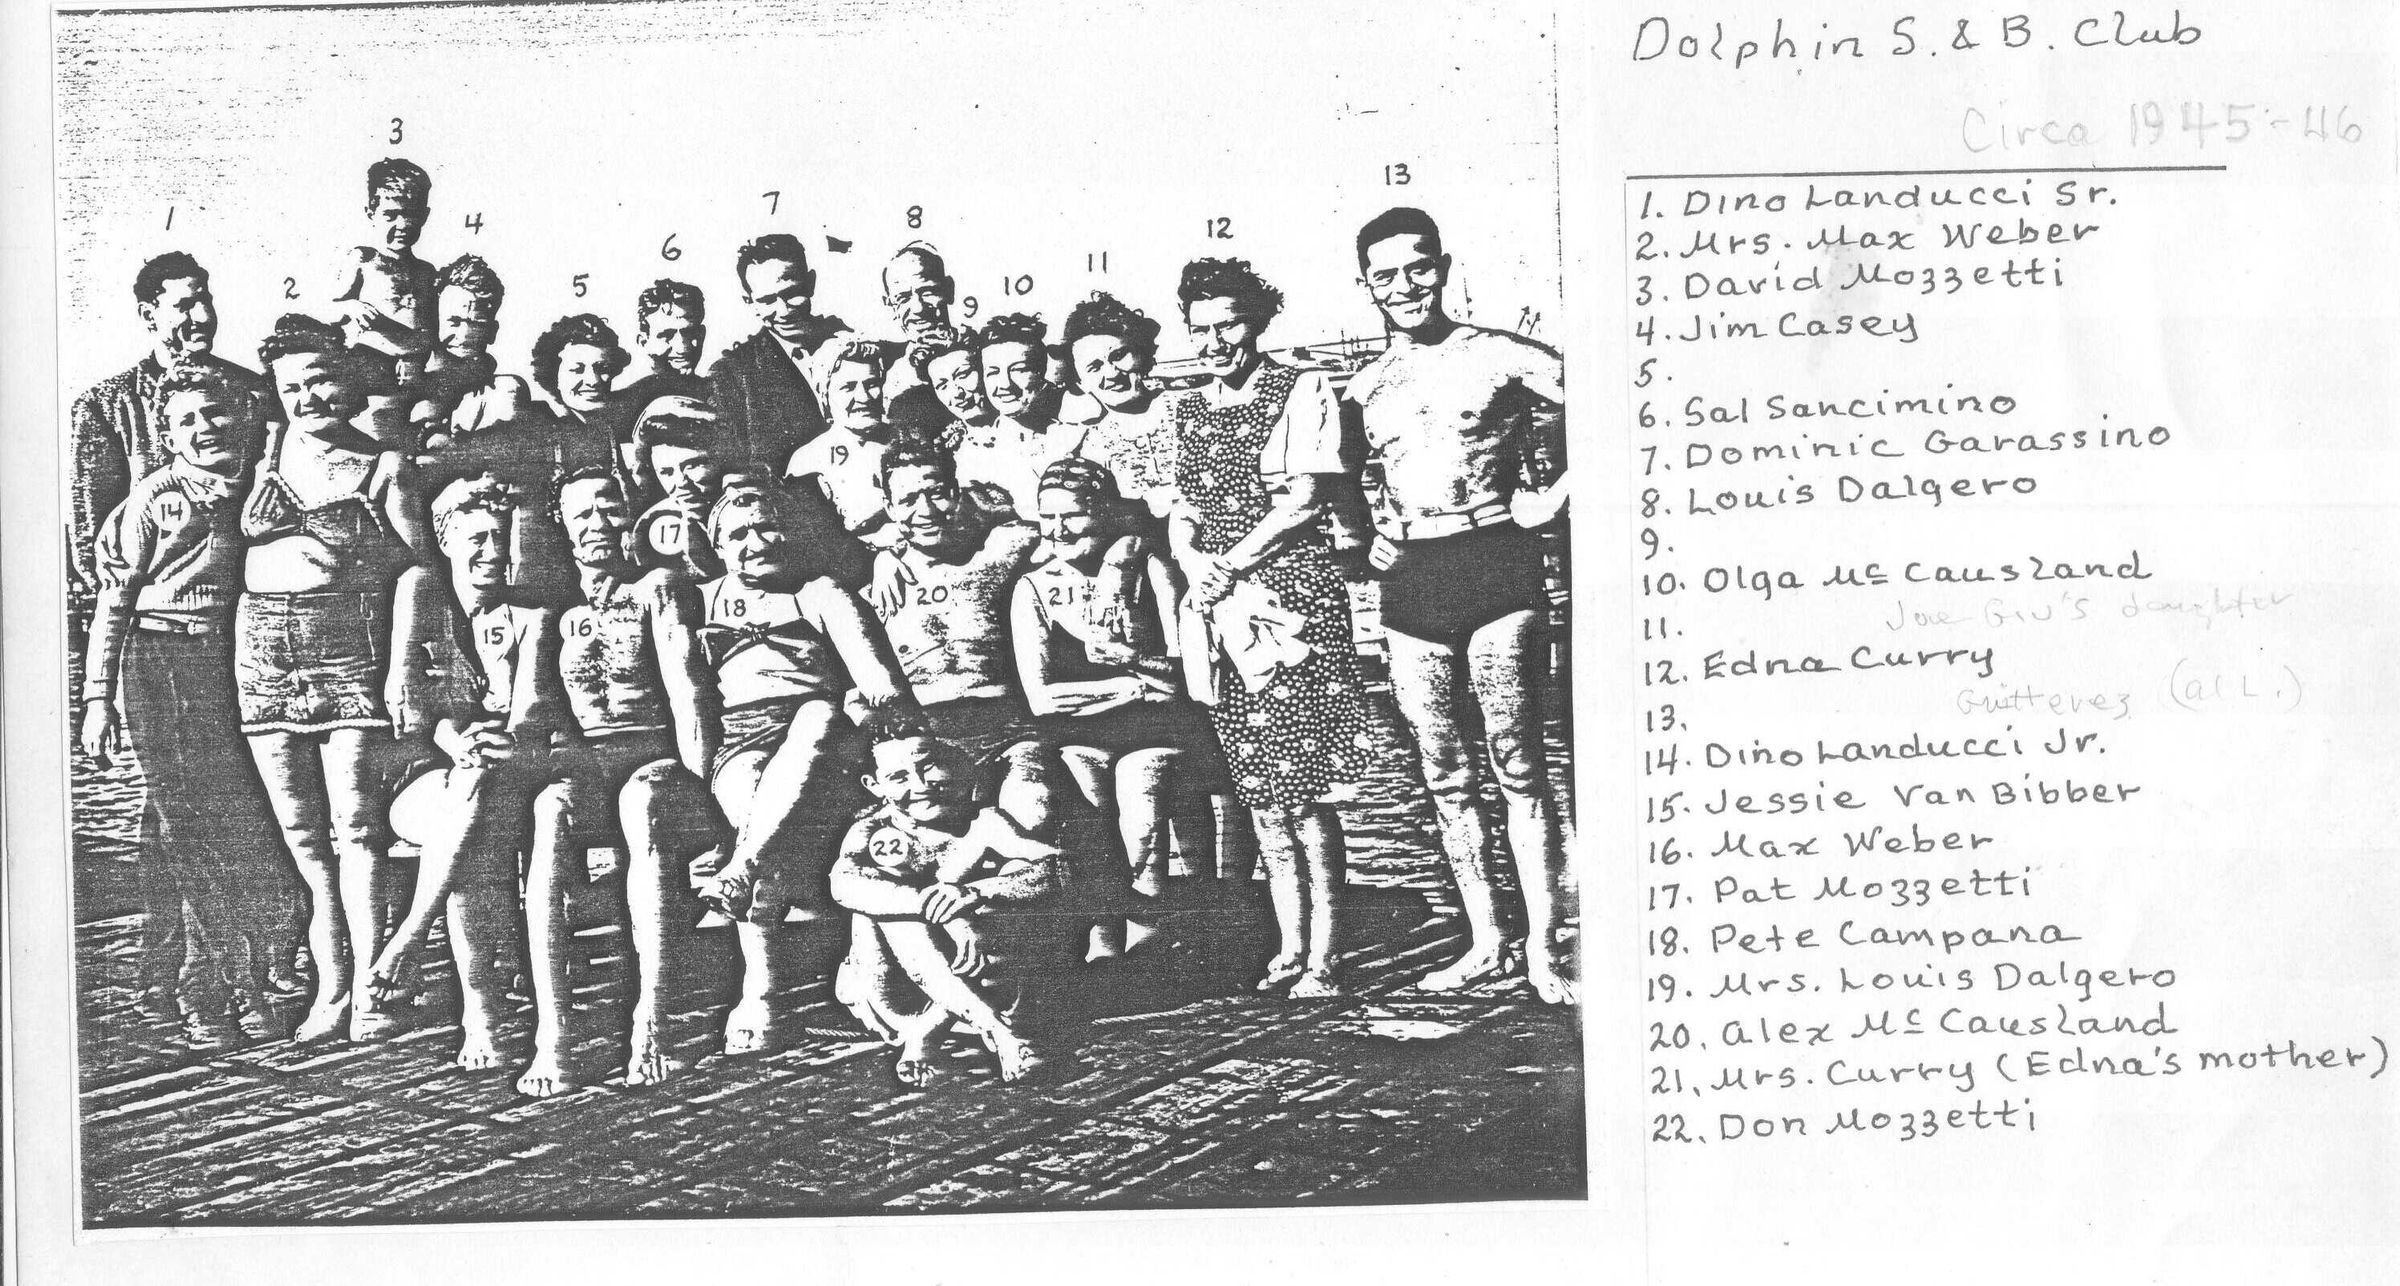 3
1
4
13
7
8
12
6
2
5
9
10
11
19
14
17
20
18
21
15
16
22
Dolphin S. & B. Club
Circa 1945-46
1. Dino Landucci Sr.
2. Mrs. Max Weber
3. David Mozzetti
4. Jim Casey
5.
6. Sal Sancimino
7. Dominic Garassino
8. Louis Dalgero
9.
10. Olga Mc Causland
11. Joe daughter
12. Edna Curry
13. (al L.)
14. Dino Landucci Jr.
15. Jessie Van Bibber
16. Max Weber
17. Pat Mozzetti
18. Pete Campana
19. Mrs. Louis Dalgero
20. Alex Mc Causland
21. Mrs. Curry (Edna's mother)
22. Don Mozzetti